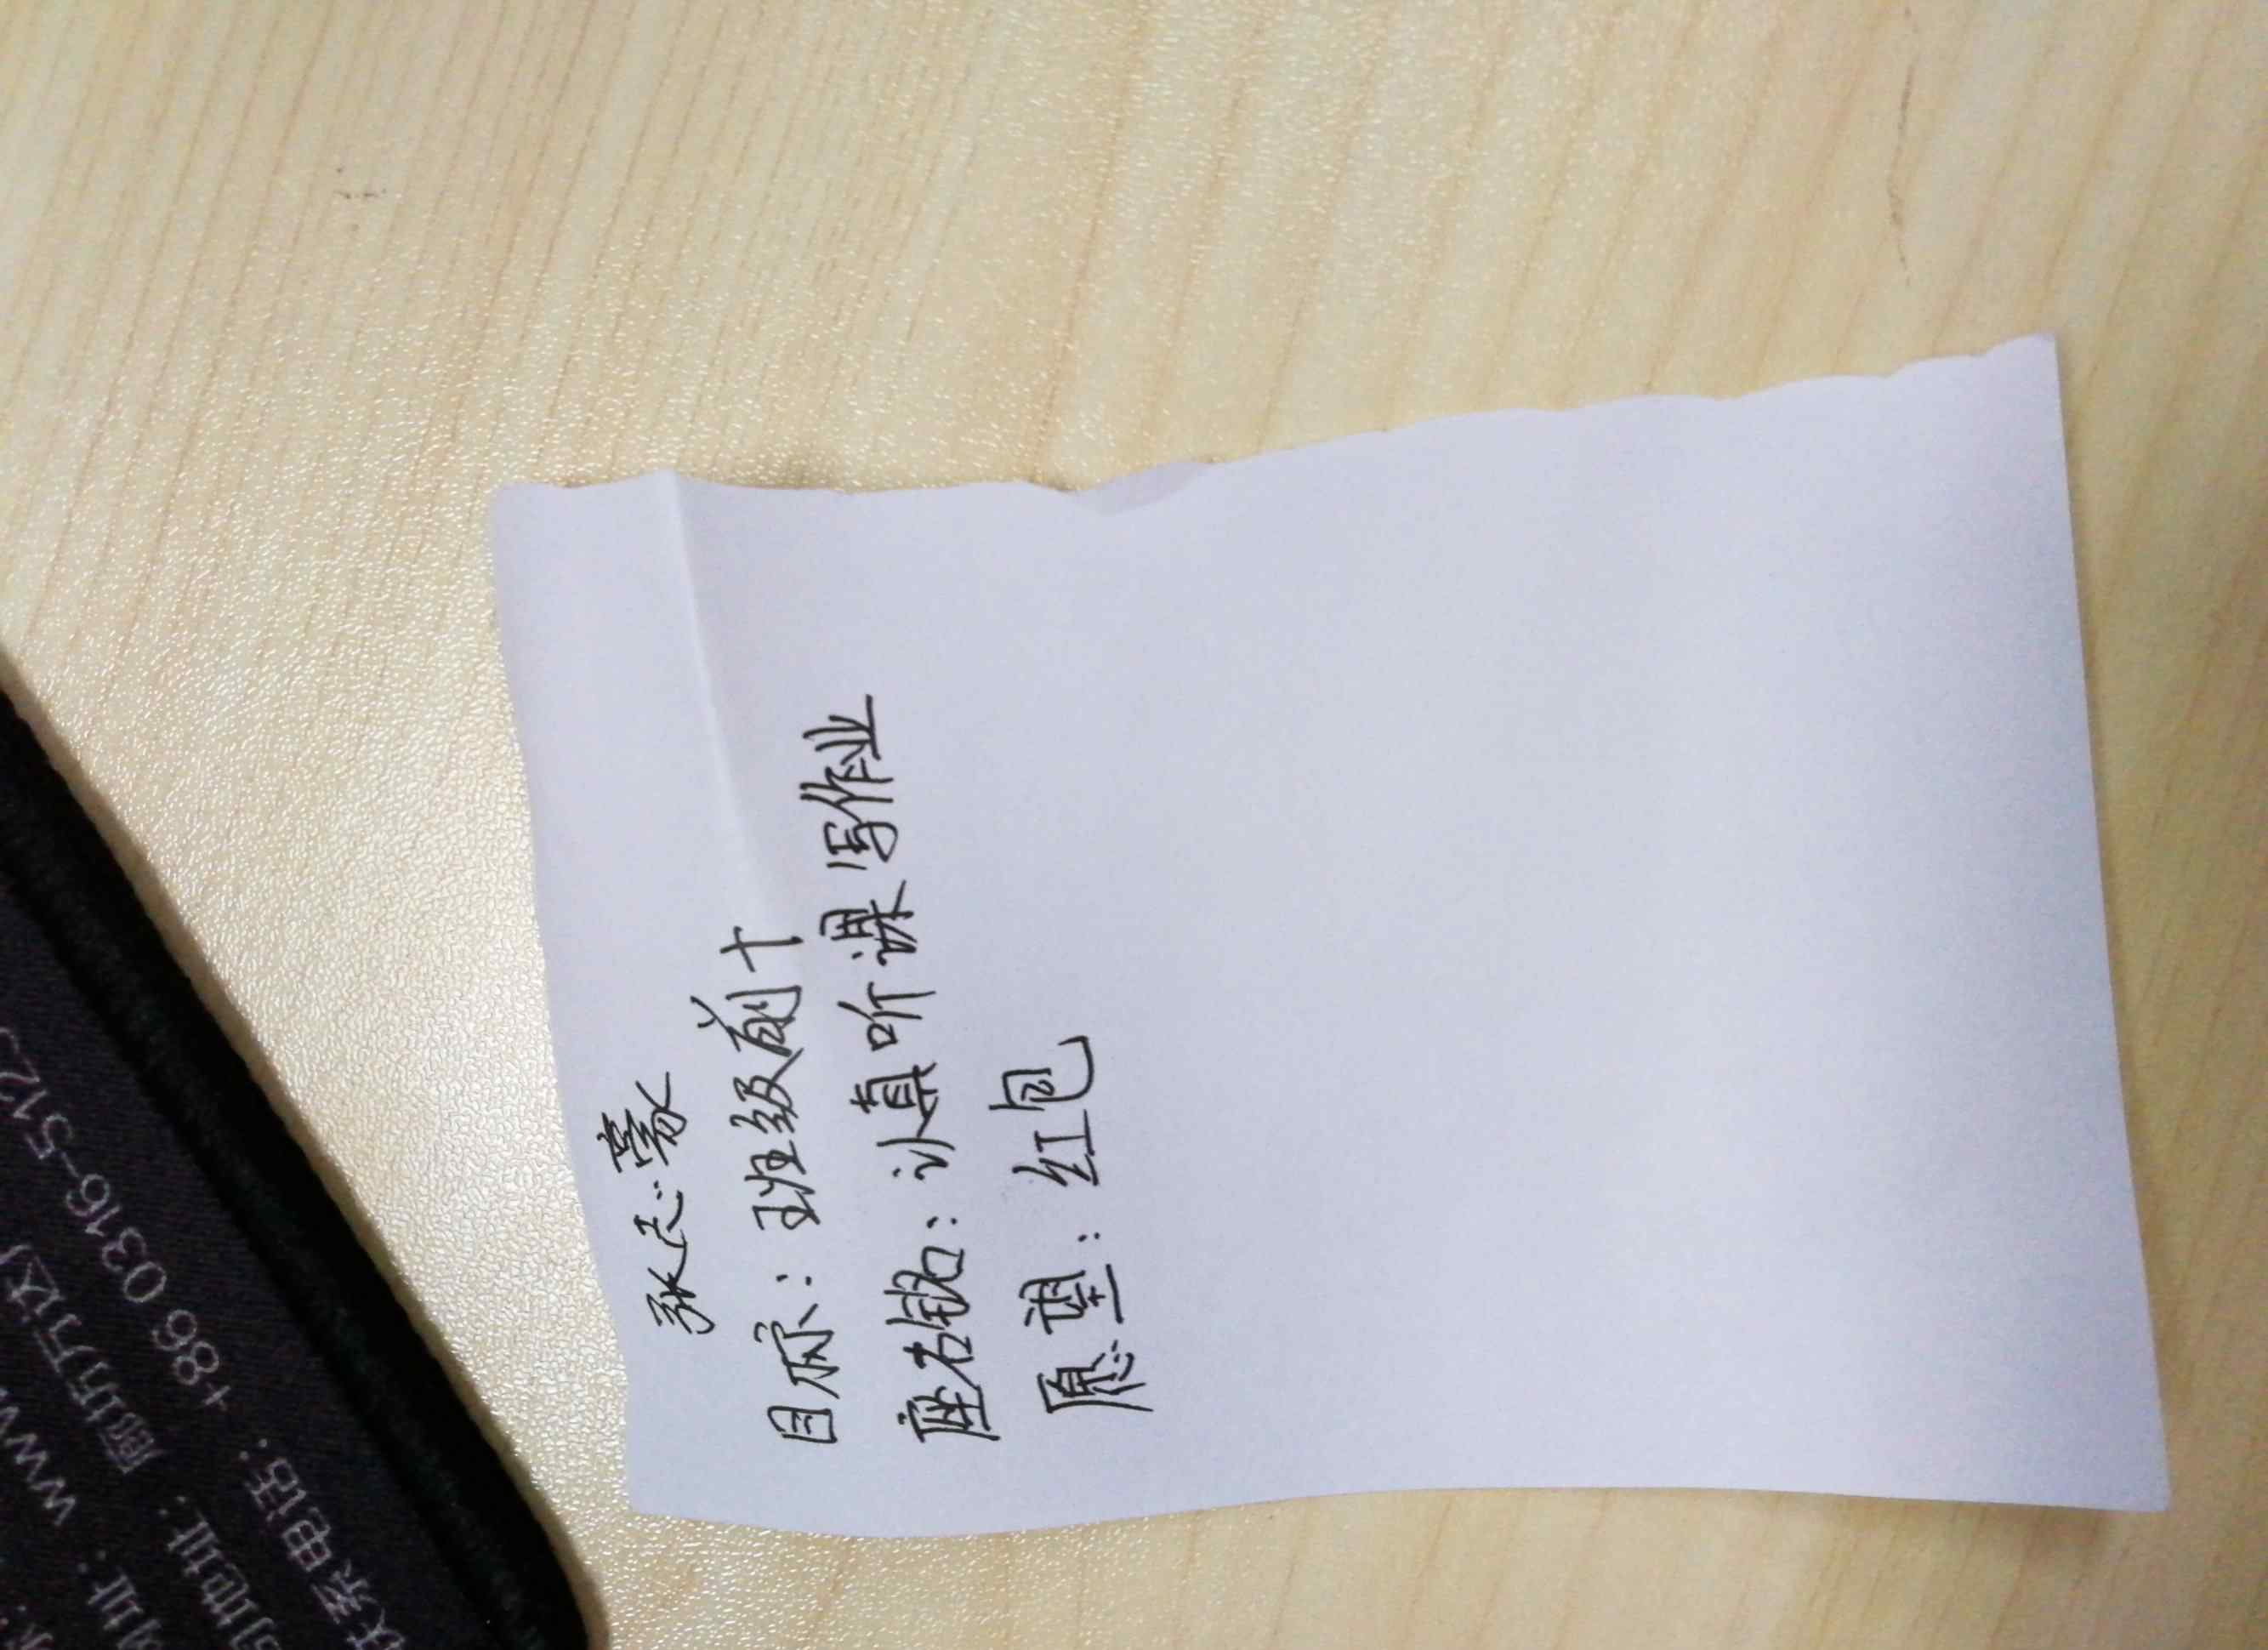 张志豪
目标：班级前十
座右铭：认真听课写作业
愿望：红包
www
地址：廊坊万达
联系电话：+86 0316-512